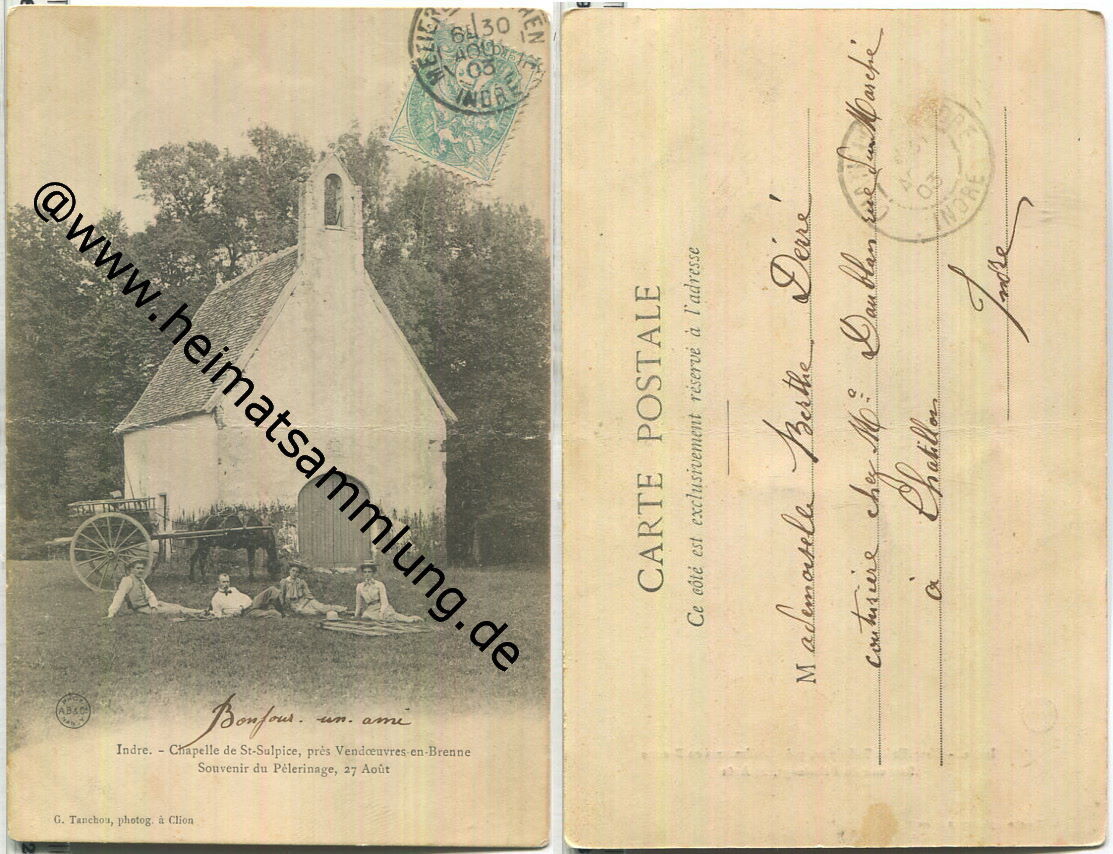 6E 30
AOUT
03
INDRE
@www.heimatsammlung.de
AB&Cº
Bonjour. un. ami
Indre. - Chapelle de St-Sulpice, près Vendœuvres-en-Brenne
Souvenir du Pèlerinage, 27 Août
G. Tanchou, photog. à Clion
CARTE POSTALE
Ce côté est exclusivement réservé à l'adresse
Mademoiselle Berthe Dèrré
couturière chez Mᵉ Daublan rue du Marché
à Chatillon
Indre
INDRE
03
INDRE